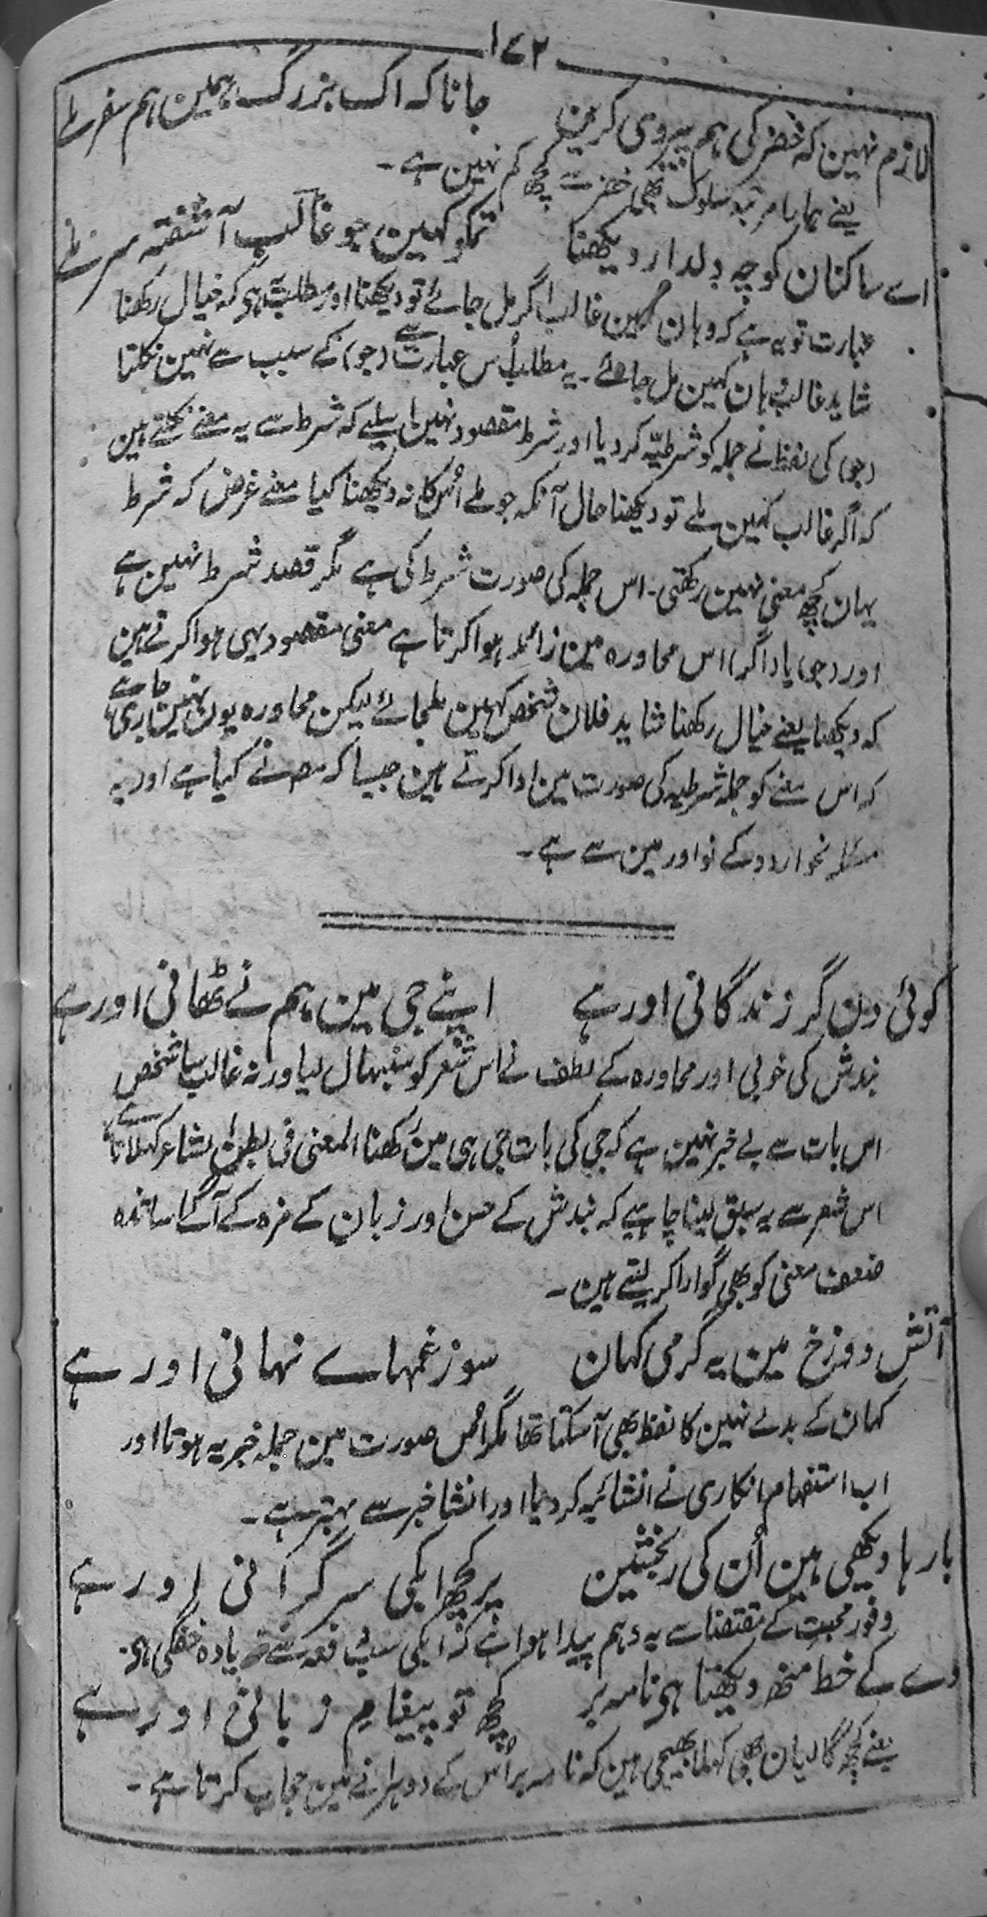 ۱۷۲
لازم نہین کہ خضر کی ہم پیروی کرین جانا کہ اک بزرگ ہمین ہم سفر ملے
یعنے ہمارا مرتبہ سلوک بھی خضر سے کچھ کم نہین ہے ۔
اے ساکنان کوچہ دلدار دیکھنا تمکو کہین جو غالب آشفتہ سر ملے
عبارت تو یہ ہے کہ وہان کہین غالب اگر مل جائے تو دیکھنا اور مطلب یہ ہی کہ خیال رکھنا
شاید غالب وہان کہین مل جائے ۔ یہ مطلب اس عبارت سے (جو) کے سبب سے نہین نکلتا
(جو) کی لفظ نے جملہ کو شرطیہ کر دیا اور شرط مقصود نہین اسلیے کہ شرط سے یہ معنے نکلتے ہین
کہ اگر غالب کہین ملے تو دیکھنا حال آنکہ جو ملے اُسکا نہ دیکھنا کیا معنے غرض کہ شرط
یہان کچھ معنی نہین رکھتی ۔ اس جملہ کی صورت شرط کی ہے مگر قصد شرط نہین ہے
اور (جو) یا (اگر) اس محاورہ مین زائد ہوا کرتا ہے معنی مقصود یہی ہوا کرتے ہین
کہ دیکھنا یعنے خیال رکھنا شاید فلان شخص کہین ملجائے لیکن محاورہ یون ہین جاری ہے
کہ اس معنے کو جملہ شرطیہ کی صورت مین ادا کرتے ہین جیسا کہ مصنے کیا ہے اور یہ
مسئلہ نحو اردو کے نوادر مین سے ہے ۔
کوئی دن گر زندگانی اور ہے اپنے جی مین ہم نے ٹھانی اور ہے
بندش کی خوبی اور محاورہ کے لطف نے اس شعر کو سنبھال لیا ورنہ غالب سا شخص
اس بات سے بے خبر نہین ہے کہ جی کی بات جی ہی مین رکھنا المعنی فی بطن الشاعر کہلاتا ہے
اس شعر سے یہ سبق لینا چاہیے کہ بندش کے حسن اور زبان کے مزہ کے آگے اساتذہ
ضعف معنی کو بھی گوارا کر لیتے ہین ۔
آتش دوزخ مین یہ گرمی کہان سوز غمہاے نہانی اور ہے
کہان کے بدلے نہین کا لفظ بھی آسکتا تھا مگر اس صورت مین جملہ خبریہ ہوتا اور
اب استفہام انکاری نے انشائیہ کر دیا اور انشا خبر سے بہتر ہے ۔
بارہا دیکھی ہین اُن کی رنجشین پر کچھ ابکی سرگرانی اور ہے
وفور محبت کے مقتضا سے یہ وہم پیدا ہوا ہے کہ ابکی سب دفعہ سے زیادہ خفگی ہی ۔
دے کے خط منھ دیکھتا ہی نامہ بر کچھ تو پیغام زبانی اور ہے
یعنے کچھ گالیان بھی کہلا بھیجی ہین کہ نامہ بر اُس کے دوہرانے مین حجاب کرتا ہے ۔